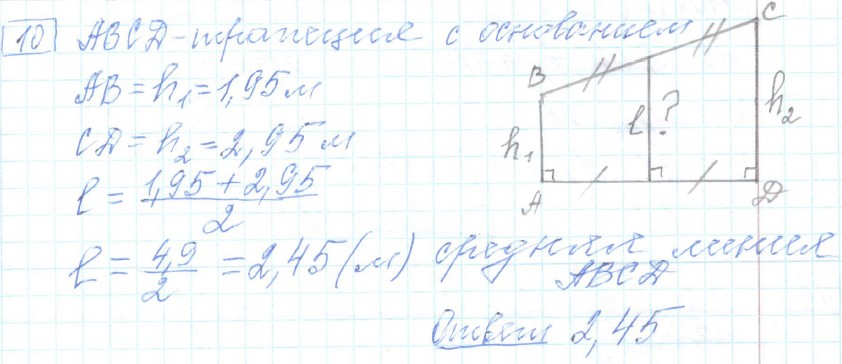 10 ABCD-трапеция с основанием
AB = h₁ = 1,95 м
CD = h₂ = 2,95 м
l = (1,95 + 2,95) / 2
l = 4,9 / 2 = 2,45 (м) средняя линия
ABCD
Ответ 2,45
B
C
h₁
l ?
h₂
A
D